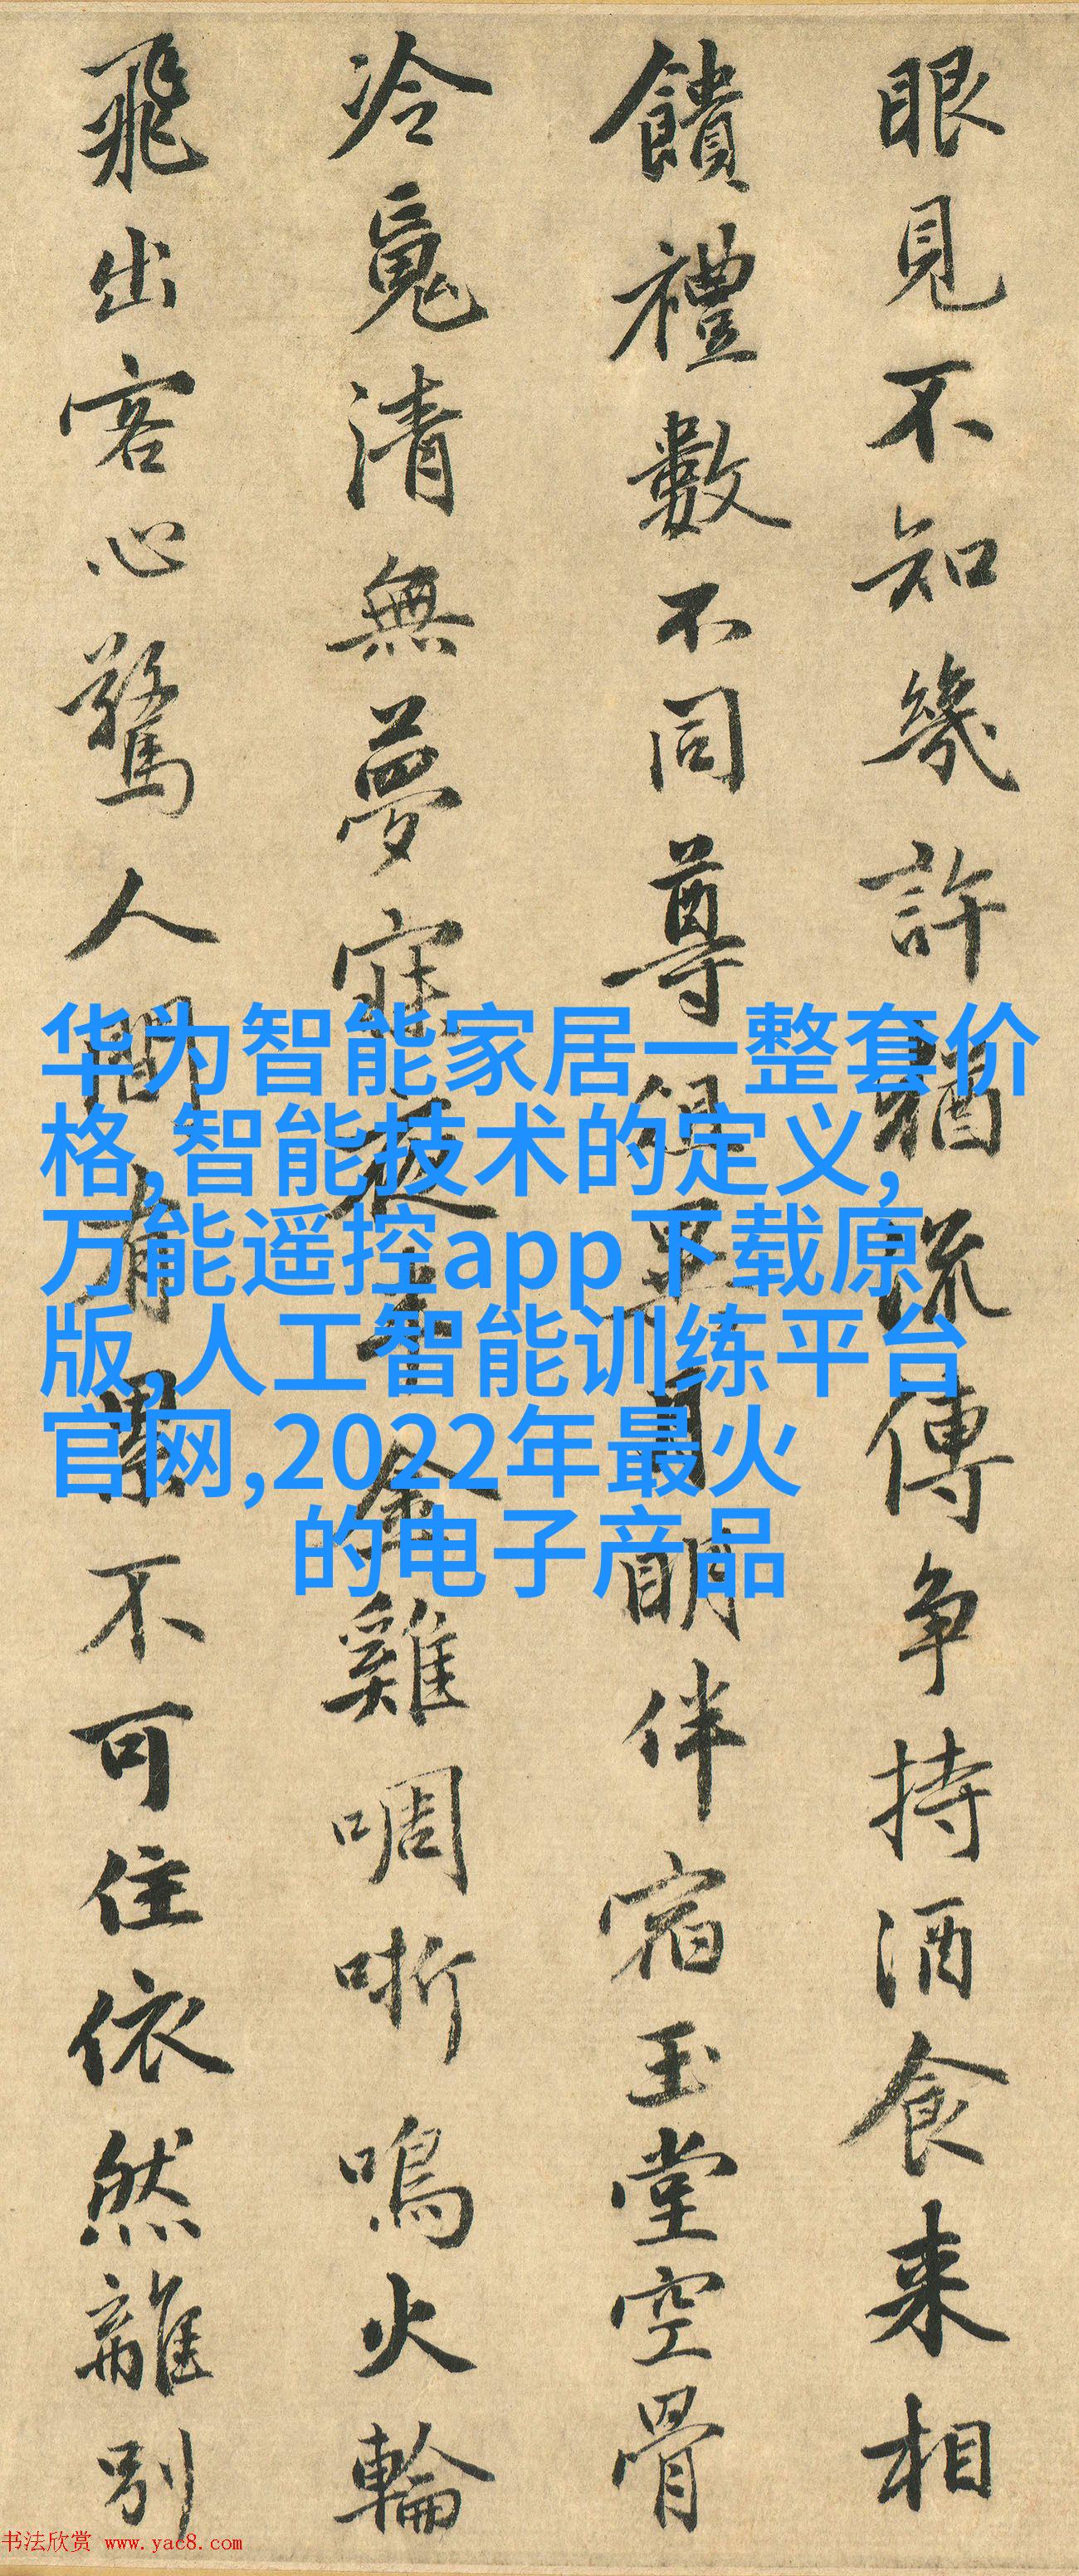 眼見不知幾許猶流傳争持酒食来相
饋禮數不同尊俎異月明伴宿玉堂空骨
冷䰟清無夢寐夜半金雞啁哳鳴火輪
飛出客心驚人間有累不可住依然離別
华为智能家居一整套价
格,智能技术的定义,
万能遥控app下载原
版,人工智能训练平台
官网,2022年最火
的电子产品
书法欣赏 www.yac8.com